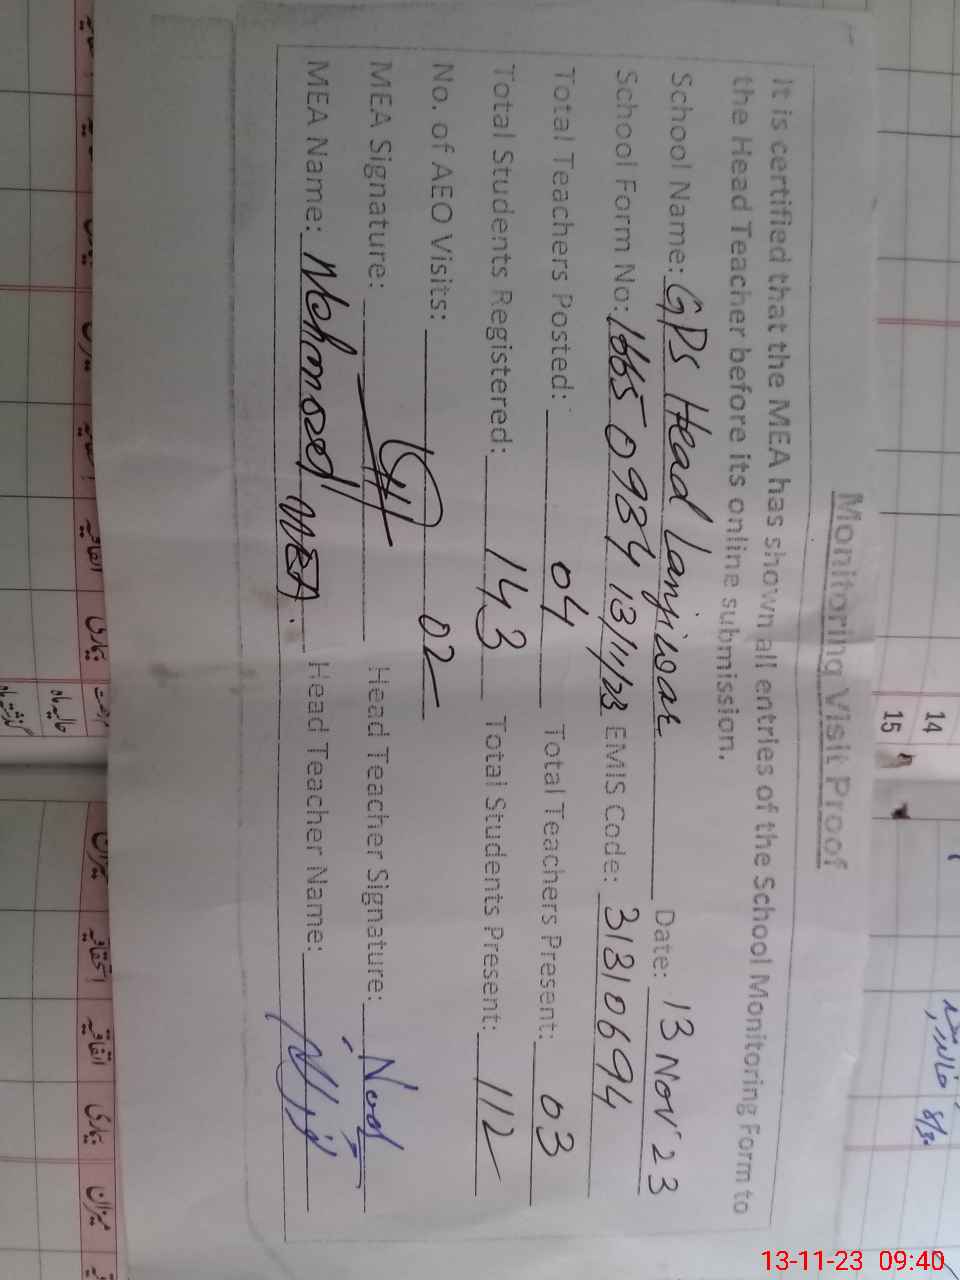 Monitoring Visit Proof
It is certified that the MEA has shown all entries of the School Monitoring Form to
the Head Teacher before its online submission.
School Name: GPS Head Lanjiwar Date: 13 Nov 23
School Form No: 16650984 13/11/23 EMIS Code: 31310694
Total Teachers Posted: 04 Total Teachers Present: 03
Total Students Registered: 143 Total Students Present: 112
No. of AEO Visits: 02
MEA Signature: Head Teacher Signature:
MEA Name: Mehmood MEA. Head Teacher Name:
14
15
میزان
اتفاقیہ
بیماری
رخصت
حالیہ ماہ
گذشتہ ماہ
میزان
استحقاقیہ
اتفاقیہ
بیماری
میزان
13-11-23 09:40